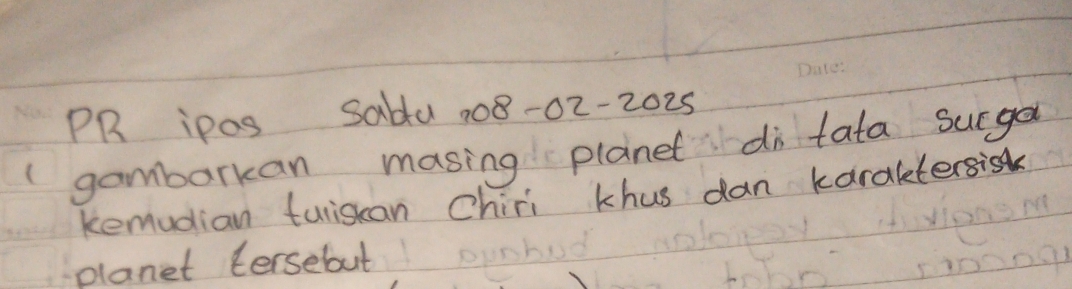 Date:
PR ipas Sabtu 08-02-2025
1 gambarkan masing planet di tata surga
kemudian tuiiskan Chiri khus dan karaktersisk
planet tersebut